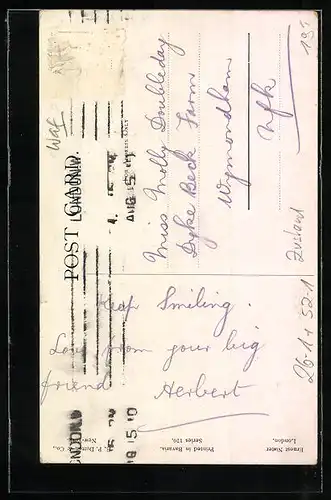 POST CARD
LONDON.N.W.
AUG 15 10
Miss Molly Doubleday
Dyke Beck Farm
Wymondham
Nfk
Keep Smiling.
Love from your big
friend Herbert
Ernest Nister
London.
Printed in Bavaria.
Series 120.
E. P. Dutton & Co.,
New-
Zustand
26-1 + 52-1